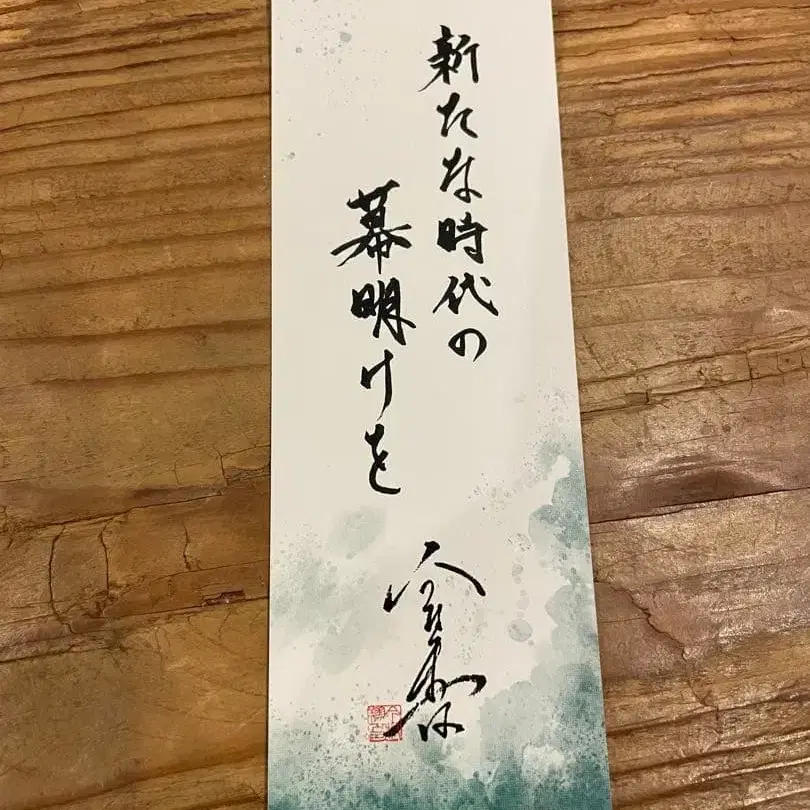 新たな時代の
幕明けを